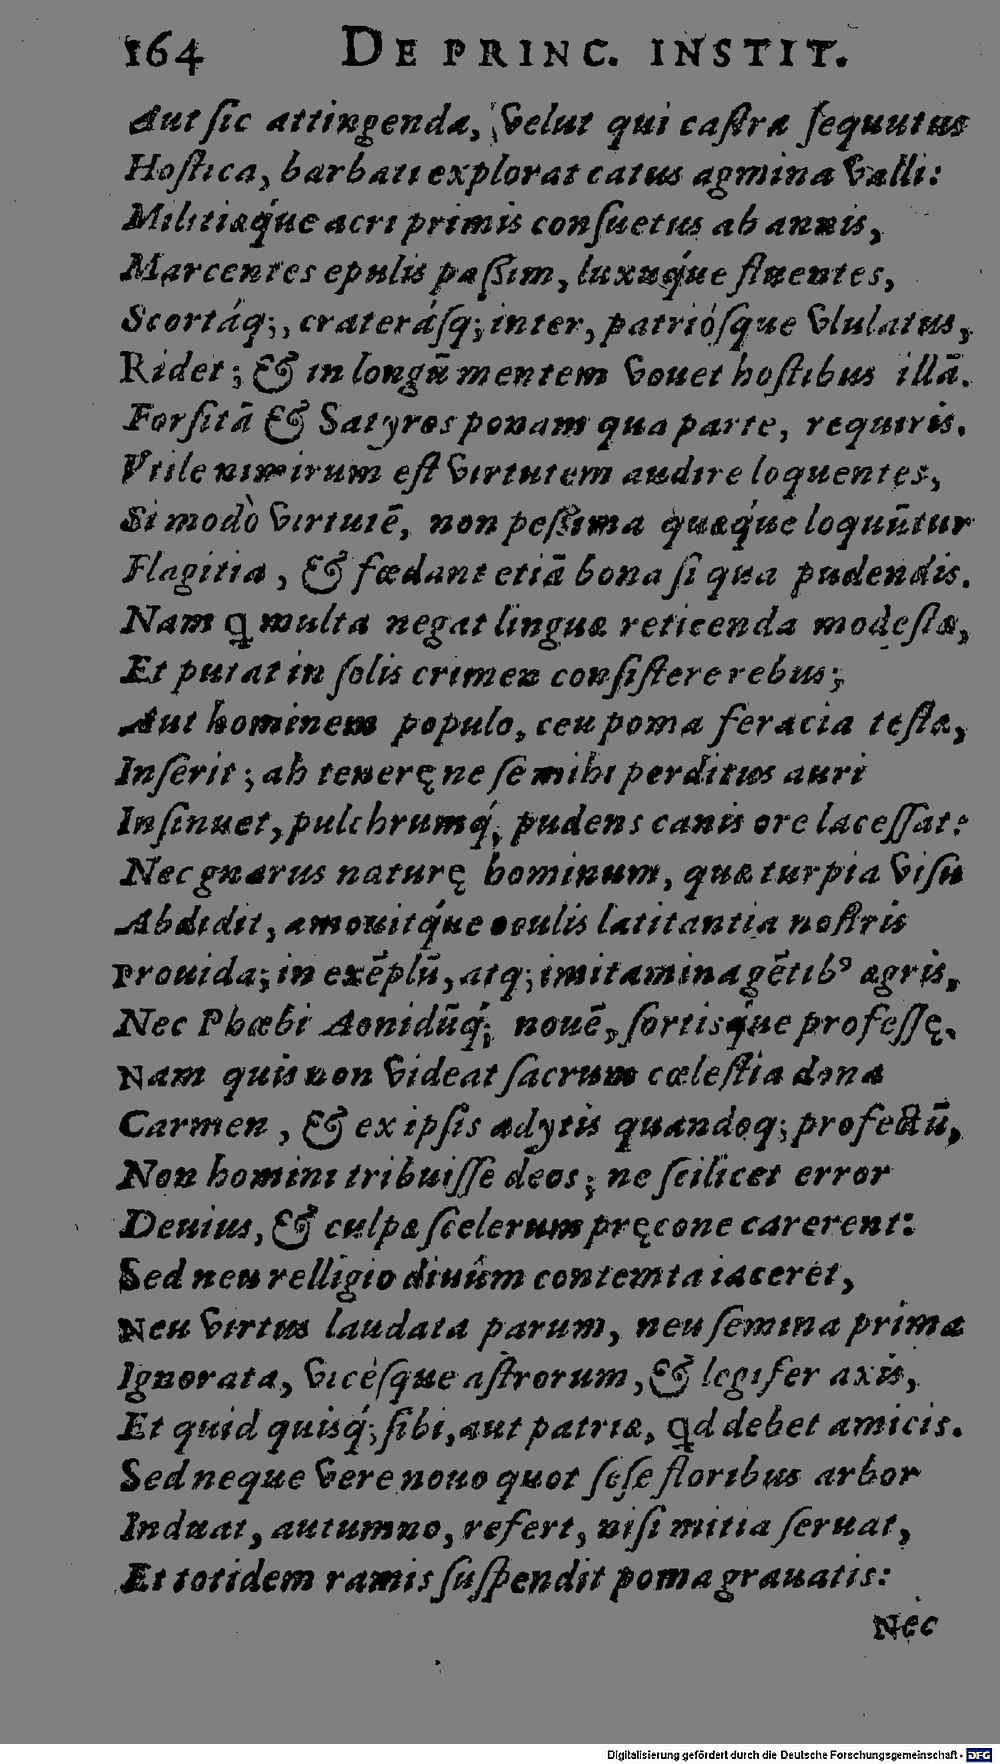 164 DE PRINC. INSTIT.
Aut ſic attingenda, velut qui caſtra ſequutus
Hoſtica, barbati explorat catus agmina valli:
Militiaq́ue acri primis conſuetus ab annis,
Marcentes epulis paſſim, luxuq́ue fluentes,
Scortáq;, crateráſq; inter, patrióſque vlulatus,
Ridet; & in longū mentem vouet hoſtibus illā.
Forſitā & Satyros ponam qua parte, requiris.
Vtile nimirum eſt virtutem audire loquentes,
Si modò virtutē, non peſſima quæq́ue loquūtur
Flagitia, & fœdant etiā bona ſi qua pudendis.
Nam ꝙ multa negat linguæ reticenda modeſtæ,
Et putat in ſolis crimen conſiſtere rebus;
Aut hominem populo, ceu poma feracia teſta,
Inſerit; ab tenerę ne ſe mihi perditus auri
Inſinuet, pulchrumq́; pudens canis ore laceſſat:
Nec gnarus naturę hominum, quæ turpia viſu
Abdidit, amouitq́ue oculis latitantia noſtris
Prouida; in exēplū, atq; imitamina gētibꝰ ægris,
Nec Phœbi Aonidūq́; nouē, ſortisq́ue profeſſę.
Nam quis non videat ſacrum cœleſtia dona
Carmen, & ex ipſis adytis quandoq; profectū,
Non homini tribuiſſe deos; ne ſcilicet error
Deuius, & culpa ſcelerum pręcone carerent:
Sed neu relligio diuûm contemta iaceret,
Neu virtus laudata parum, neu ſemina prima
Ignorata, vicéſque aſtrorum, & legifer axis,
Et quid quisq́; ſibi, aut patriæ, ꝙd debet amicis.
Sed neque vere nouo quot ſeſe floribus arbor
Induat, autumno, refert, niſi mitia ſeruat,
Et totidem ramis ſuſpendit poma grauatis:
Nec
Digitalisierung gefördert durch die Deutsche Forschungsgemeinschaft - DFG